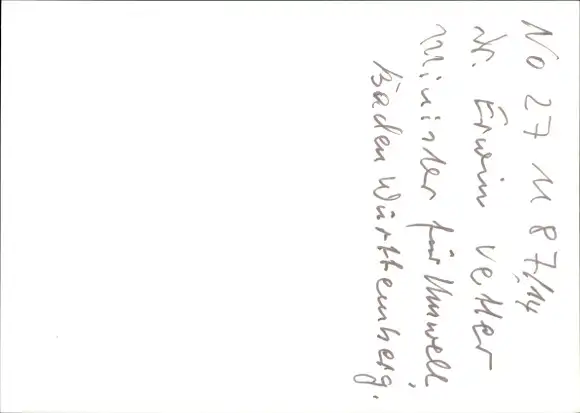 No 27 11 87/14
Dr. Erwin Vetter
Minister für Umwelt
Baden Württemberg.